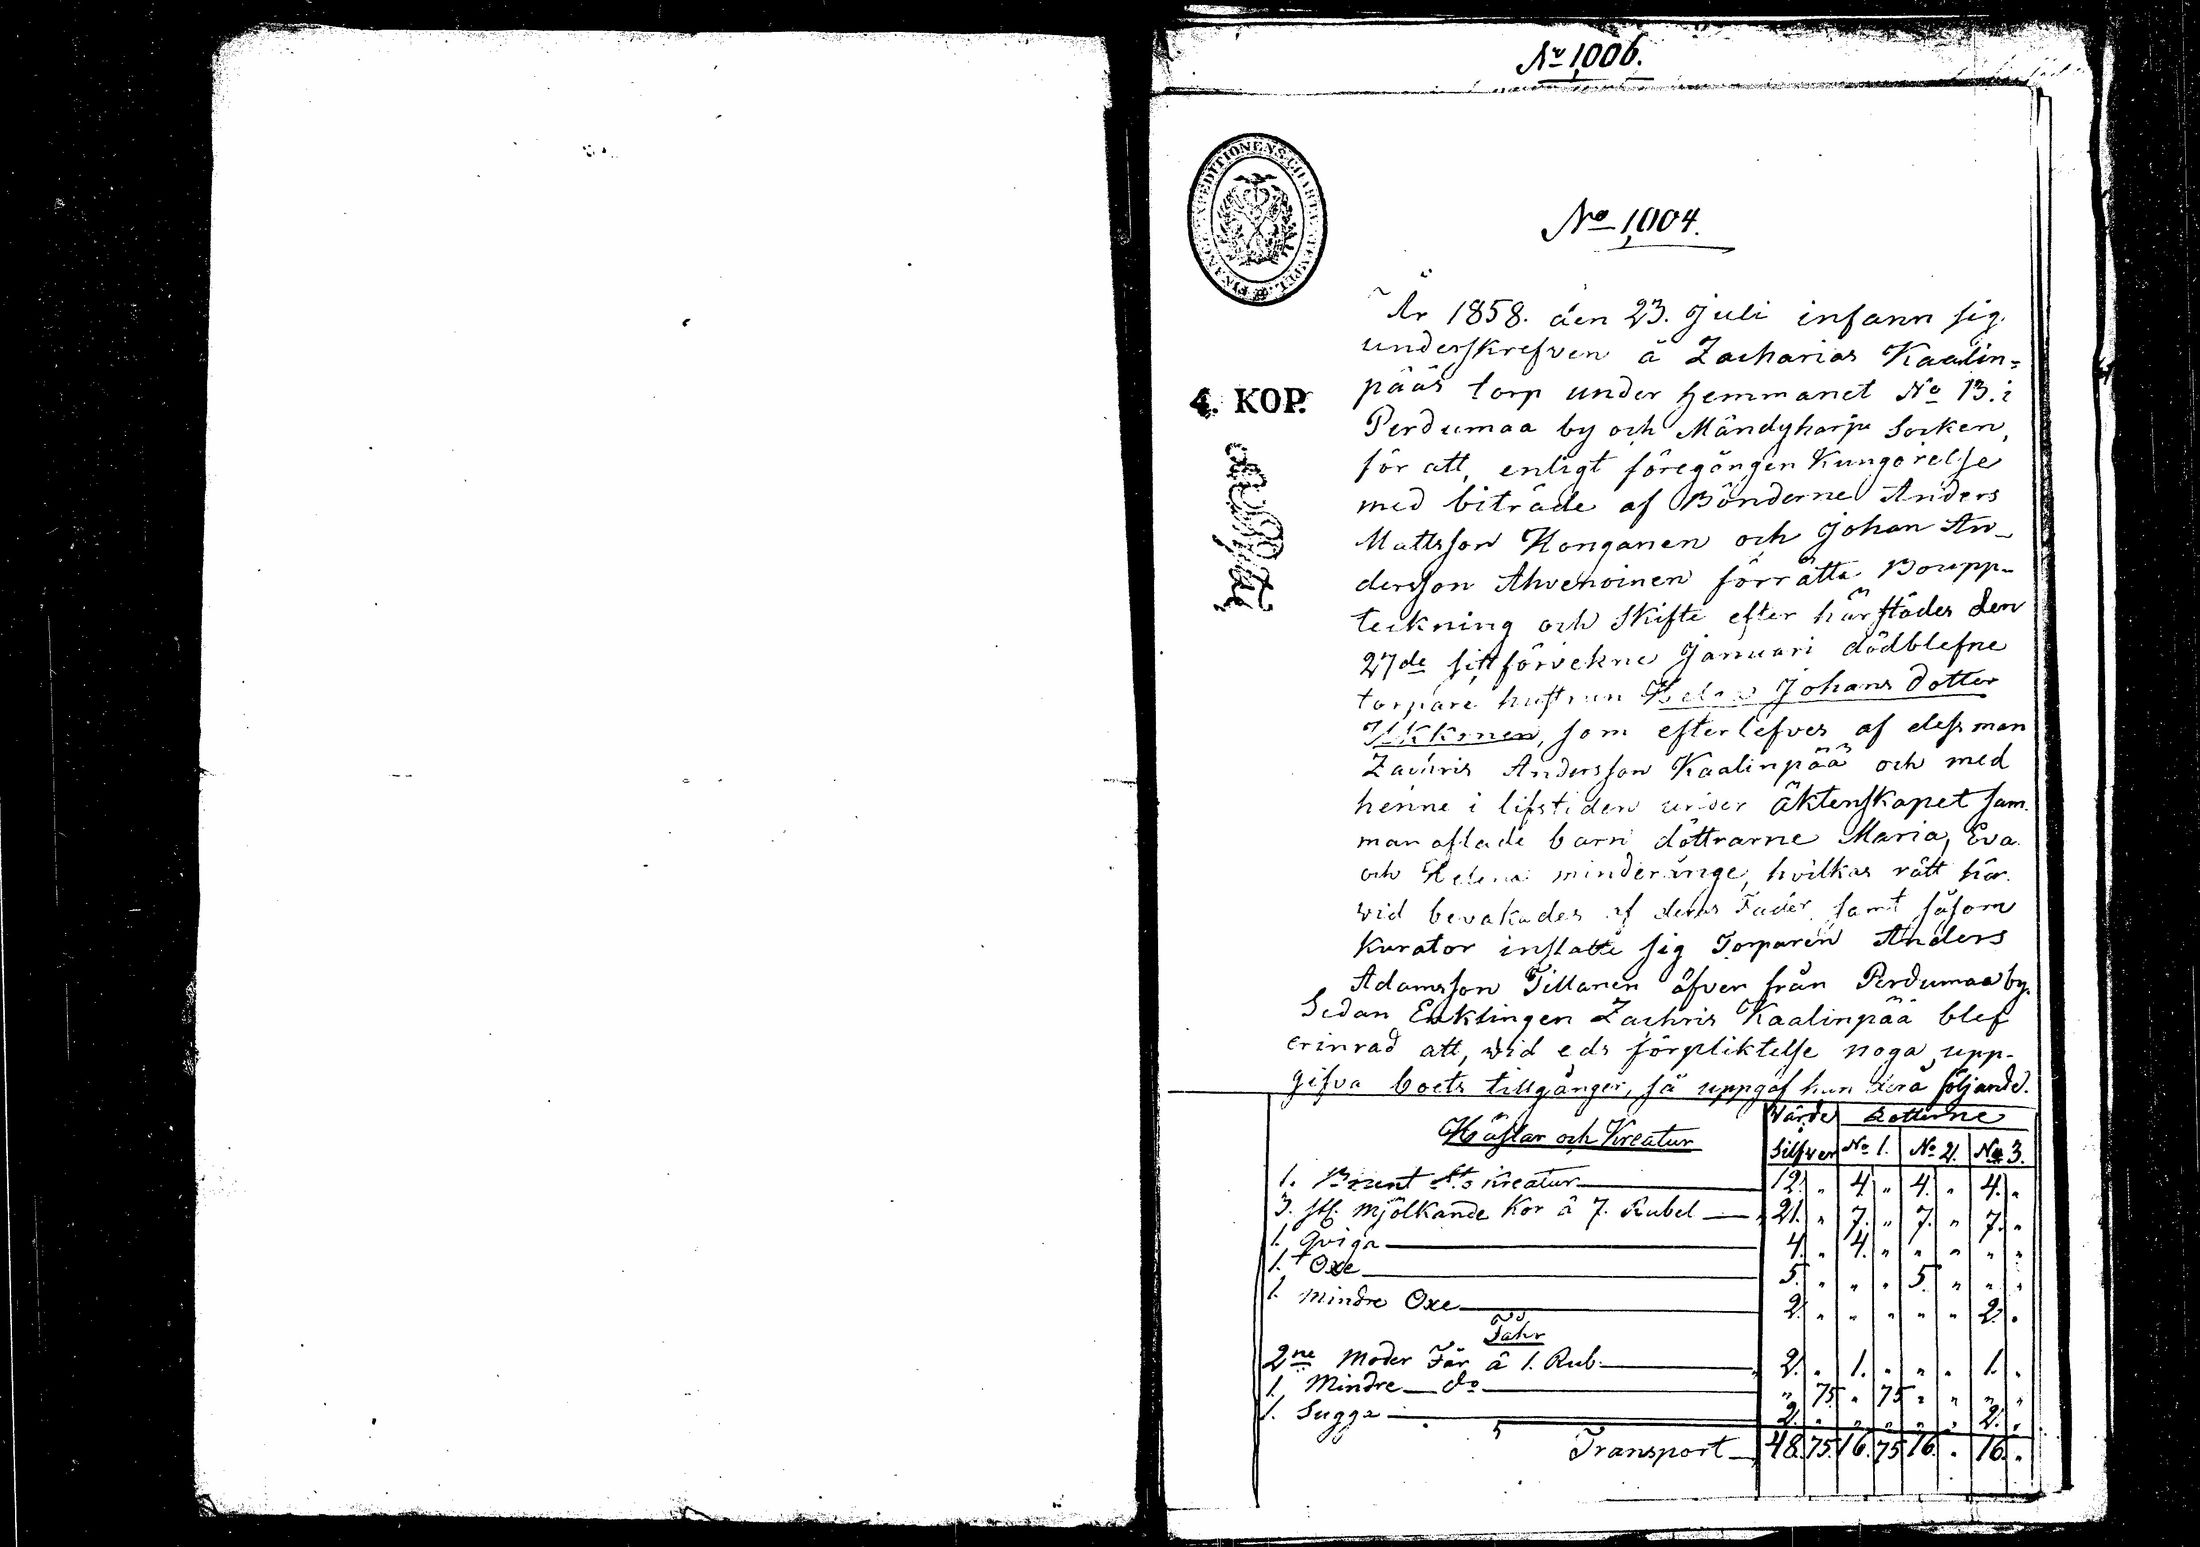 No 1006.
FINANCE EXPEDITIONENS CHARTÆ STEMPEL.
No 1004.
4. KOP.
År 1858. den 23. Juli infann sig
underskrefven å Zacharias Kaalin=
pääs torp under hemmanet No 13. i
Perdumaa by och Mändyharju Socken,
för att, enligt föregången Kungörelse
med biträde af Bönderne Anders
Mattsson Konganen och Johan An-
dersson Ahvenoinen förrätta Boupp-
teckning och Skifte efter härstädes den
27de sittförvekne Januari dödblefne
torpare hustrun Helena Johans dotter
Ukkonen, som efterlefves af dess man
Zachris Andersson Kaalinpää och med
henne i lifstiden under äktenskapet sam-
man aflade barn döttrarne Maria, Eva
och Helena minderårige, hvilkas rätt här-
vid bevakades af deras Fader, samt såsom
Kurator instälte sig Torparen Anders
Adamsson Tillanen äfven från Perdumaa by.
Sedan Enklingen Zachris Kaalinpää blef
erinrad att, vid eds förpliktelse noga upp-
gifva boets tillgånger, så uppgaf han dera följande.
Hästar och Kreatur Värde Silfver Lotterne No 1. No 2. No 3.
1. Brunt Kreatur 12. " 4. " 4. " 4. "
3. st. Mjölkande Kor à 7. Rubel 21. " 7. " 7. " 7. "
1. Qviga 4. " 4. " " " " "
1. Oxe 5. " " " 5. " " "
1. Mindre Oxe 2. " " " " " 2. "
Fåhr
2ne Moder Får à 1. Rub. 2. " 1. " " " 1. "
1. Mindre do " 75 " 75 " " " "
1. Sugga 2. " " " " " 2. "
Transport 48. 75. 16. 75 16. " 16. "